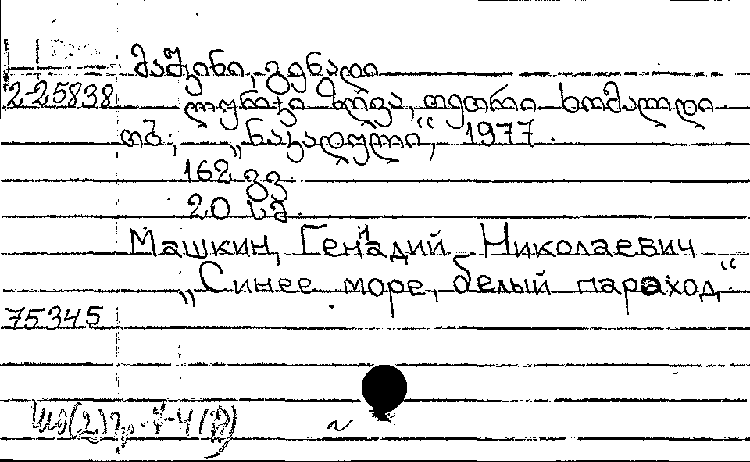 მაშკინი, გენადი
225838 ლურჯი ზღვა, თეთრი ხომალდი
თბ; „ნაკადული“, 1977.
162 გვ.
20 სმ.
Машкин, Генадий Николаевич
„Синее море, белый пароход“.
75345